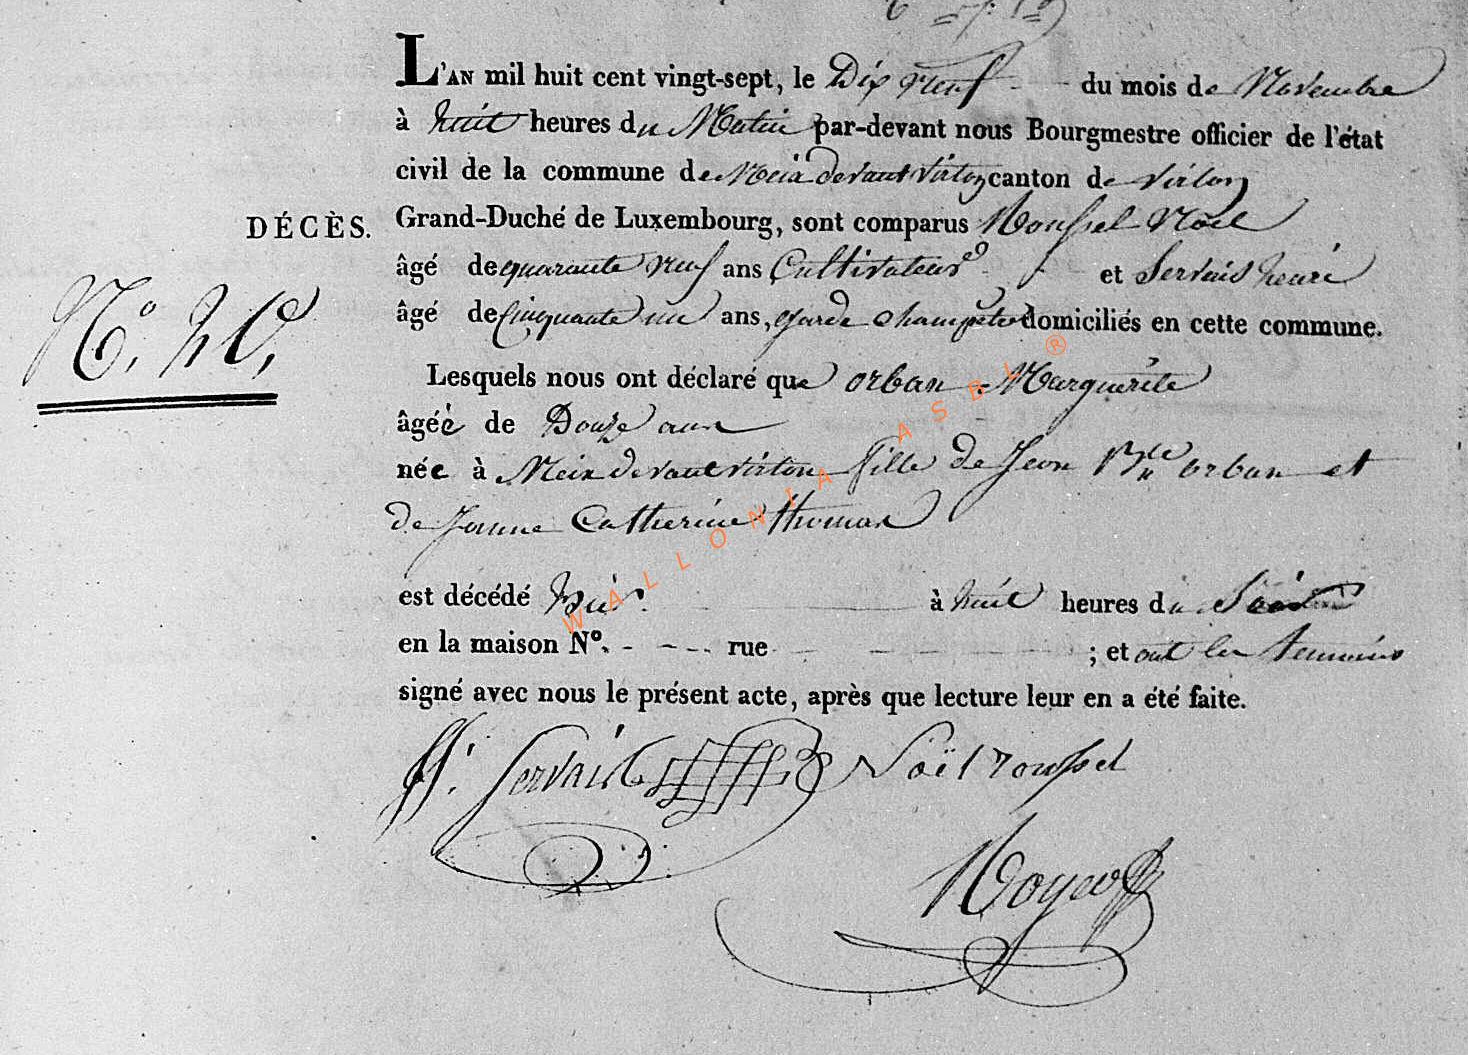 L'AN mil huit cent vingt-sept, le Dix neuf du mois de Novembre
à huit heures du Matin par-devant nous Bourgmestre officier de l'état
civil de la commune de Meix devant virton canton de virton
DÉCÈS. Grand-Duché de Luxembourg, sont comparus Roussel Noël
âgé de quarante neuf ans Cultivateur et Servais henri
N.º 20.
âgé de Cinquante un ans, garde champêtre domiciliés en cette commune.
Lesquels nous ont déclaré que orban Marguerite
âgéé de Douze ans
née à Meix devant virton fille de Jean Bte orban et
de Jeanne Catherine thomas
est décédé hier à huit heures du Soir
en la maison Nº. rue ; et ont les temoins
signé avec nous le présent acte, après que lecture leur en a été faite.
H. Servais Noël roussel
WALLONIA ASBL ®